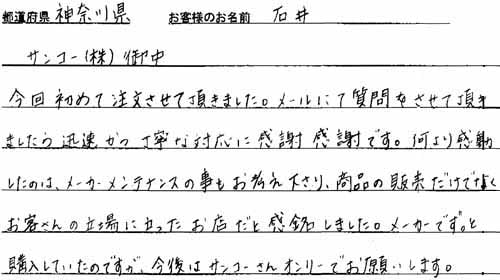 都道府県 神奈川県 お客様のお名前 石井
サンコー(株)御中
今回初めて注文させて頂きました。メールにて質問をさせて頂き
ましたら迅速かつ丁寧な対応に感謝感謝です。何より感動
したのは、メーカーメンテナンスの事もお教え下さり、商品の販売だけでなく
お客さんの立場に立ったお店だと感銘しました。メーカーです。と
購入していたのですが、今後はサンコーさんオンリーでお願いします。